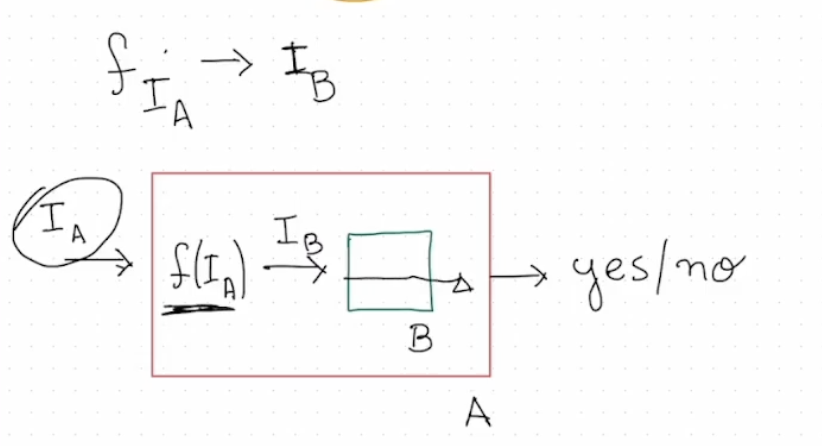 f I_A → I_B
I_A → f(I_A) I_B → → yes/no
B
A